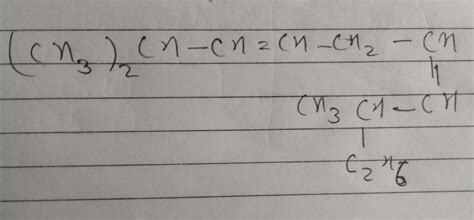 (CH₃)₂CH-CH=CH-CH₂-CH
||
CH₃ CH-CH
|
C₂H₆